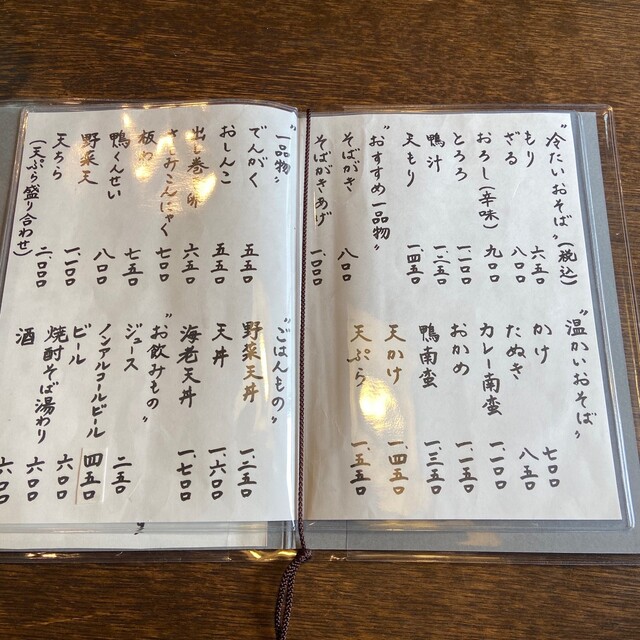 〝冷たいおそば〟(税込)
もり 六五〇
ざる 八〇〇
おろし(辛味) 九〇〇
とろろ 一、一〇〇
鴨汁 一、二五〇
天もり 一、四五〇
〝おすすめ一品物〟
そばがき 八〇〇
そばがきあげ 一、〇〇〇
〝温かいおそば〟
かけ 七〇〇
たぬき 八五〇
カレー南蛮 一、一〇〇
おかめ 一、一五〇
鴨南蛮 一、三五〇
天かけ 一、四五〇
天ぷら 一、五五〇
〝一品物〟
でんがく 五五〇
おしんこ 五五〇
出し巻 六五〇
さしみこんにゃく 七〇〇
板わ 七五〇
鴨くんせい 八〇〇
野菜天 一、一〇〇
天ちら 二、〇〇〇
(天ぷら盛り合わせ)
〝ごはんもの〟
野菜天丼 一、二五〇
天丼 一、六〇〇
海老天丼 一、七〇〇
〝お飲みもの〟
ジュース 二五〇
ノンアルコールビール 四五〇
ビール 六〇〇
焼酎そば湯わり 六〇〇
酒 六〇〇